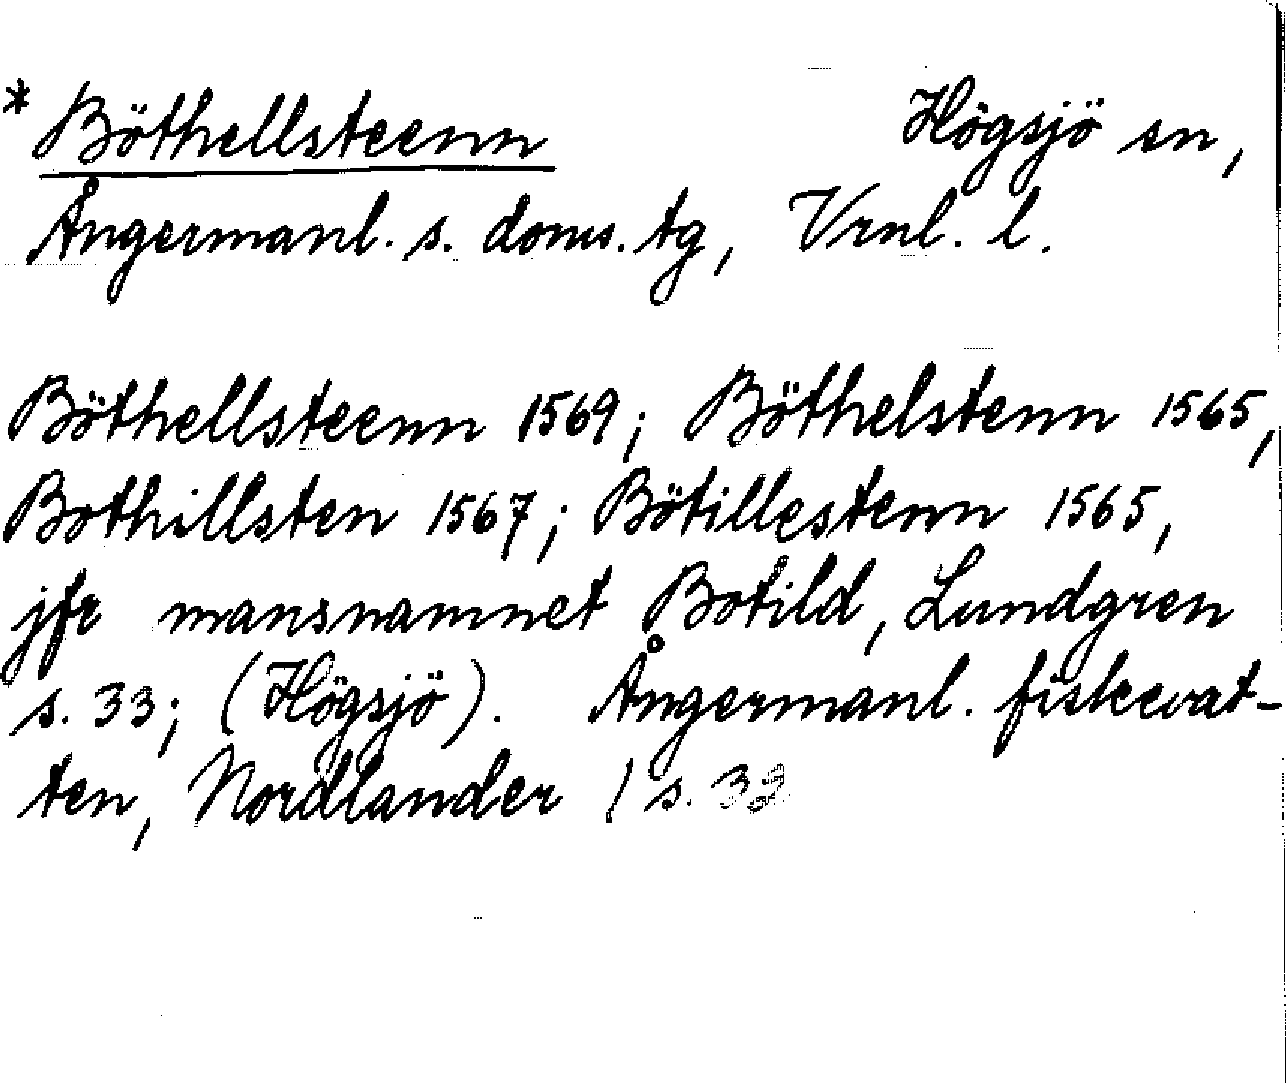 * Böthellsteenn Högsjö sn,
Ångermanl. s. doms. tg, Vrnl. l.
Böthellsteenn 1569; Böthelstenn 1565,
Bothillsten 1567; Bötillestenn 1565,
jfr mansnamnet Botild, Lundgren
s. 33; (Högsjö). Ångermanl. fiskevat-
ten, Nordlander / s. 32